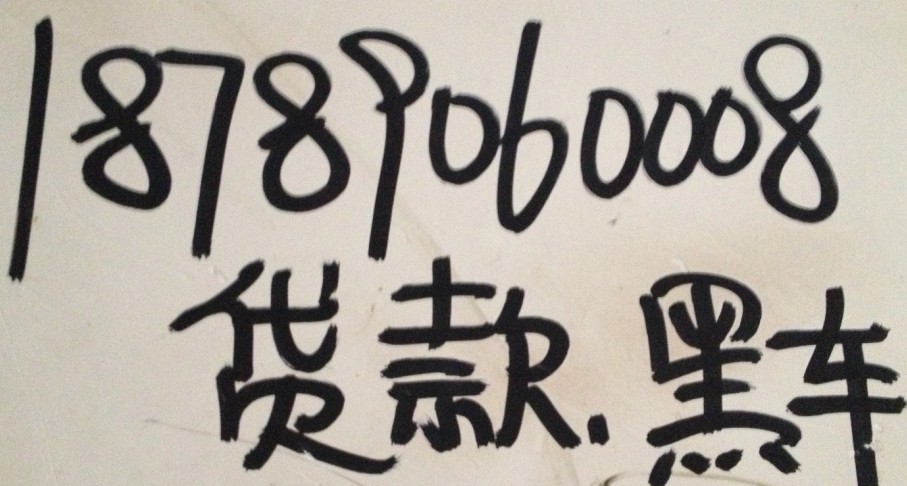 18789060008
货款.黑车